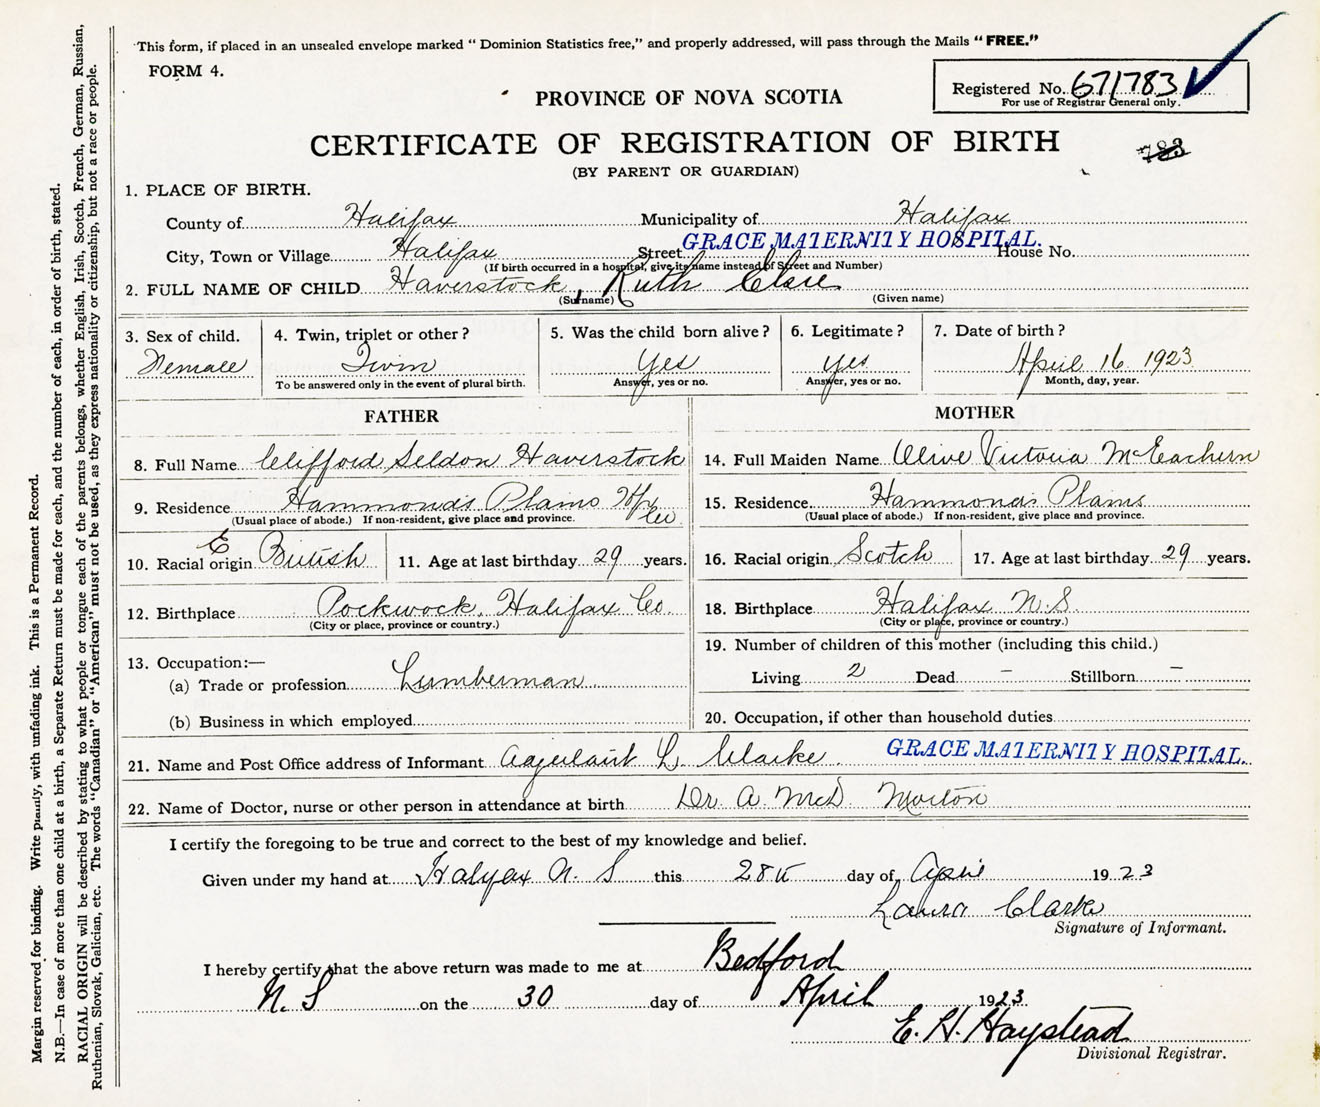 This form, if placed in an unsealed envelope marked "Dominion Statistics free," and properly addressed, will pass through the Mails "FREE."
FORM 4.
Registered No. 671783
For use of Registrar General only.
PROVINCE OF NOVA SCOTIA
CERTIFICATE OF REGISTRATION OF BIRTH
783
(BY PARENT OR GUARDIAN)
1. PLACE OF BIRTH.
County of Halifax Municipality of Halifax
GRACE MATERNITY HOSPITAL.
City, Town or Village Halifax Street House No.
(If birth occurred in a hospital, give its name instead of Street and Number)
2. FULL NAME OF CHILD Haverstock, Ruth Clare
(Surname) (Given name)
3. Sex of child. 4. Twin, triplet or other? 5. Was the child born alive? 6. Legitimate? 7. Date of birth?
Female Twin Yes yes April 16 1923
To be answered only in the event of plural birth. Answer, yes or no. Answer, yes or no. Month, day, year.
FATHER MOTHER
8. Full Name Clifford Seldon Haverstock 14. Full Maiden Name Olive Victoria McEachern
9. Residence Hammonds Plains Hfx Co 15. Residence Hammonds Plains
(Usual place of abode.) If non-resident, give place and province. (Usual place of abode.) If non-resident, give place and province.
E
10. Racial origin British 11. Age at last birthday 29 years. 16. Racial origin Scotch 17. Age at last birthday 29 years.
12. Birthplace Pockwock, Halifax Co. 18. Birthplace Halifax N.S
(City or place, province or country.) (City or place, province or country.)
13. Occupation:— 19. Number of children of this mother (including this child.)
(a) Trade or profession Lumberman Living 2 Dead — Stillborn —
(b) Business in which employed 20. Occupation, if other than household duties
21. Name and Post Office address of Informant L. Clarke. GRACE MATERNITY HOSPITAL.
22. Name of Doctor, nurse or other person in attendance at birth Dr. A. McD. Morton
I certify the foregoing to be true and correct to the best of my knowledge and belief.
Given under my hand at Halifax N. S this 28th day of April 1923
Laura Clarke
Signature of Informant.
I hereby certify that the above return was made to me at Bedford
N. S on the 30 day of April 1923.
E. H. Haystead
Divisional Registrar.
Margin reserved for binding. Write plainly, with unfading ink. This is a Permanent Record.
N.B.—In case of more than one child at a birth, a Separate Return must be made for each, and the number of each, in order of birth, stated.
RACIAL ORIGIN will be described by stating to what people or tongue each of the parents belongs, whether English, Irish, Scotch, French, German, Russian,
Ruthenian, Slovak, Galician, etc. The words "Canadian" or "American" must not be used, as they express nationality or citizenship, but not a race or people.